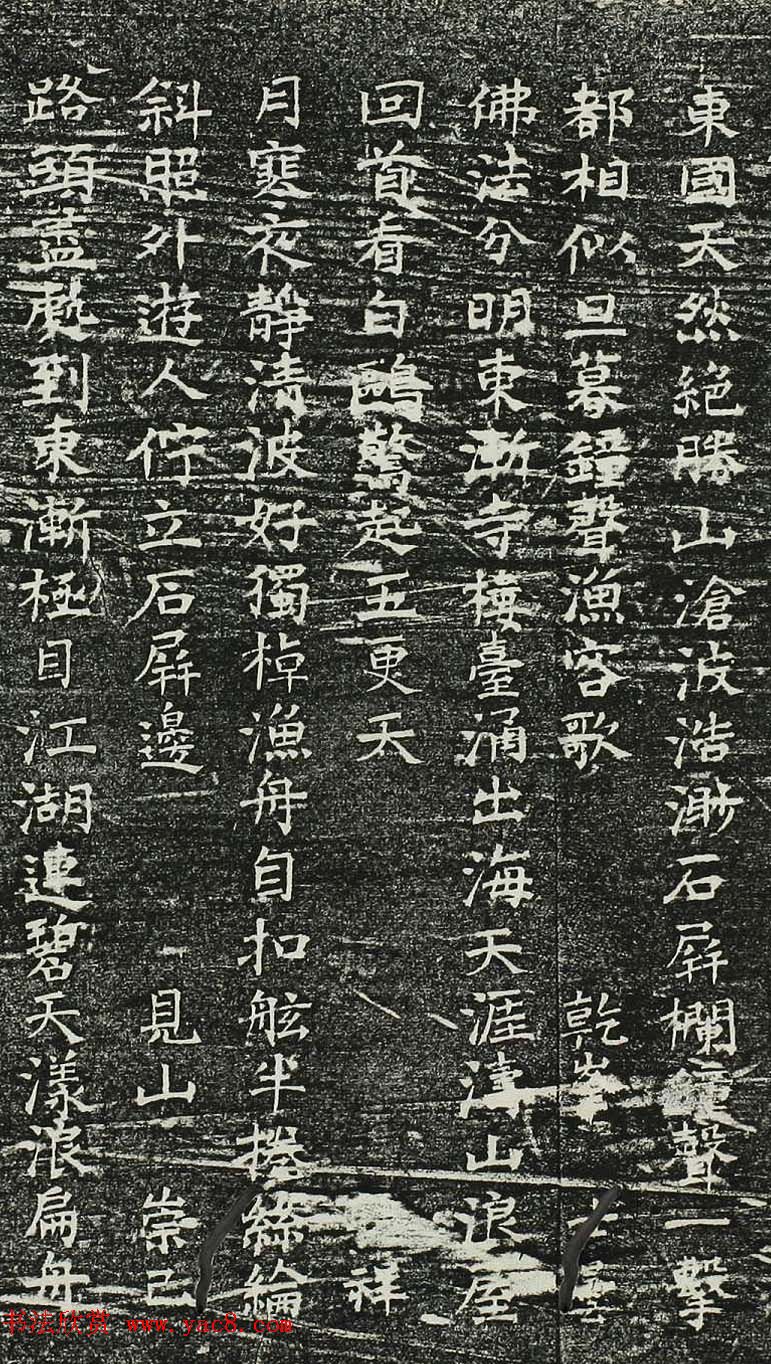 東國天然絕勝山滄波浩渺石屏欄鐘聲一擊
都相似旦暮鐘聲漁客歌 乾峯 士曇
佛法分明東漸寺梅臺涌出海天涯濤山浪屋
回首看白鷗驚起五更天 祥
月寒夜靜清波好獨棹漁舟自扣舷半捲絲綸
斜照外遊人佇立石屏邊 見山 崇己
路頭盡處到東漸極目江湖連碧天漾浪扁舟
书法欣赏 www.yac8.com